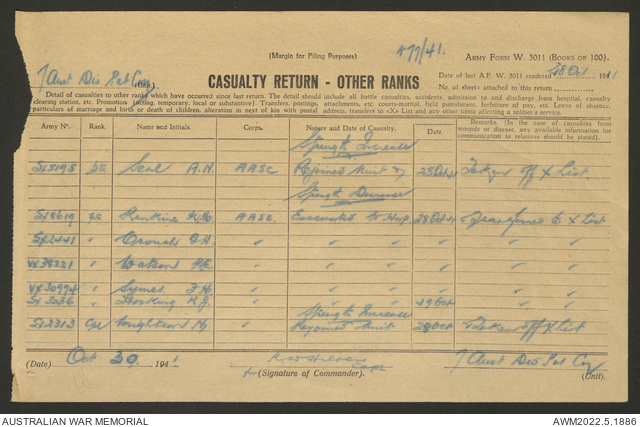 # 77/41.
(Margin for Filing Purposes)
ARMY FORM W. 3011 (BOOKS OF 100).
7 Aust Div Pet Coy (Unit).
CASUALTY RETURN - OTHER RANKS
Date of last A.F. W. 3011 rendered 28 Oct 1941
No. of sheets attached to this return
Detail of casualties to other ranks which have occurred since last return. The detail should include all battle casualties, accidents, admission to and discharge from hospital, casualty
clearing station, etc. Promotion (acting, temporary, local or substantive). Transfers, postings, attachments, etc. courts-martial, field punishment, forfeiture of pay, etc. Leave of absence,
particulars of marriage and birth or death of children, alteration in next of kin with postal address, transfers to «X» List and any other items affecting a soldier's service.
Army Nº. Rank. Name and Initials. Corps. Nature and Date of Casualty. Date. Remarks. (In the case of casualties from wounds or disease, any available information for communication to relatives should be stated).
Strength Increase
SX5195 Seal A.N. AASC Rejoined Unit 28 Oct 41 Taken off X List.
Strength Decrease
SX8619 Rankine AASC. Evacuated to Hosp 28 Oct 41 Transferred to X List
SX2441 " Crouch G.H. " " " "
VX38221 " Watson " " " "
VX30974 " Symes " " " "
SX3036 " Hosking K.J. " " 29 Oct "
Strength Increase
SX2313 Cpl Rejoined Unit 29 Oct Taken off X List
(Date) Oct 29 1941
Capt
for (Signature of Commander).
7 Aust Div Pet Coy
(Unit).
AUSTRALIAN WAR MEMORIAL
AWM2022.5.1886